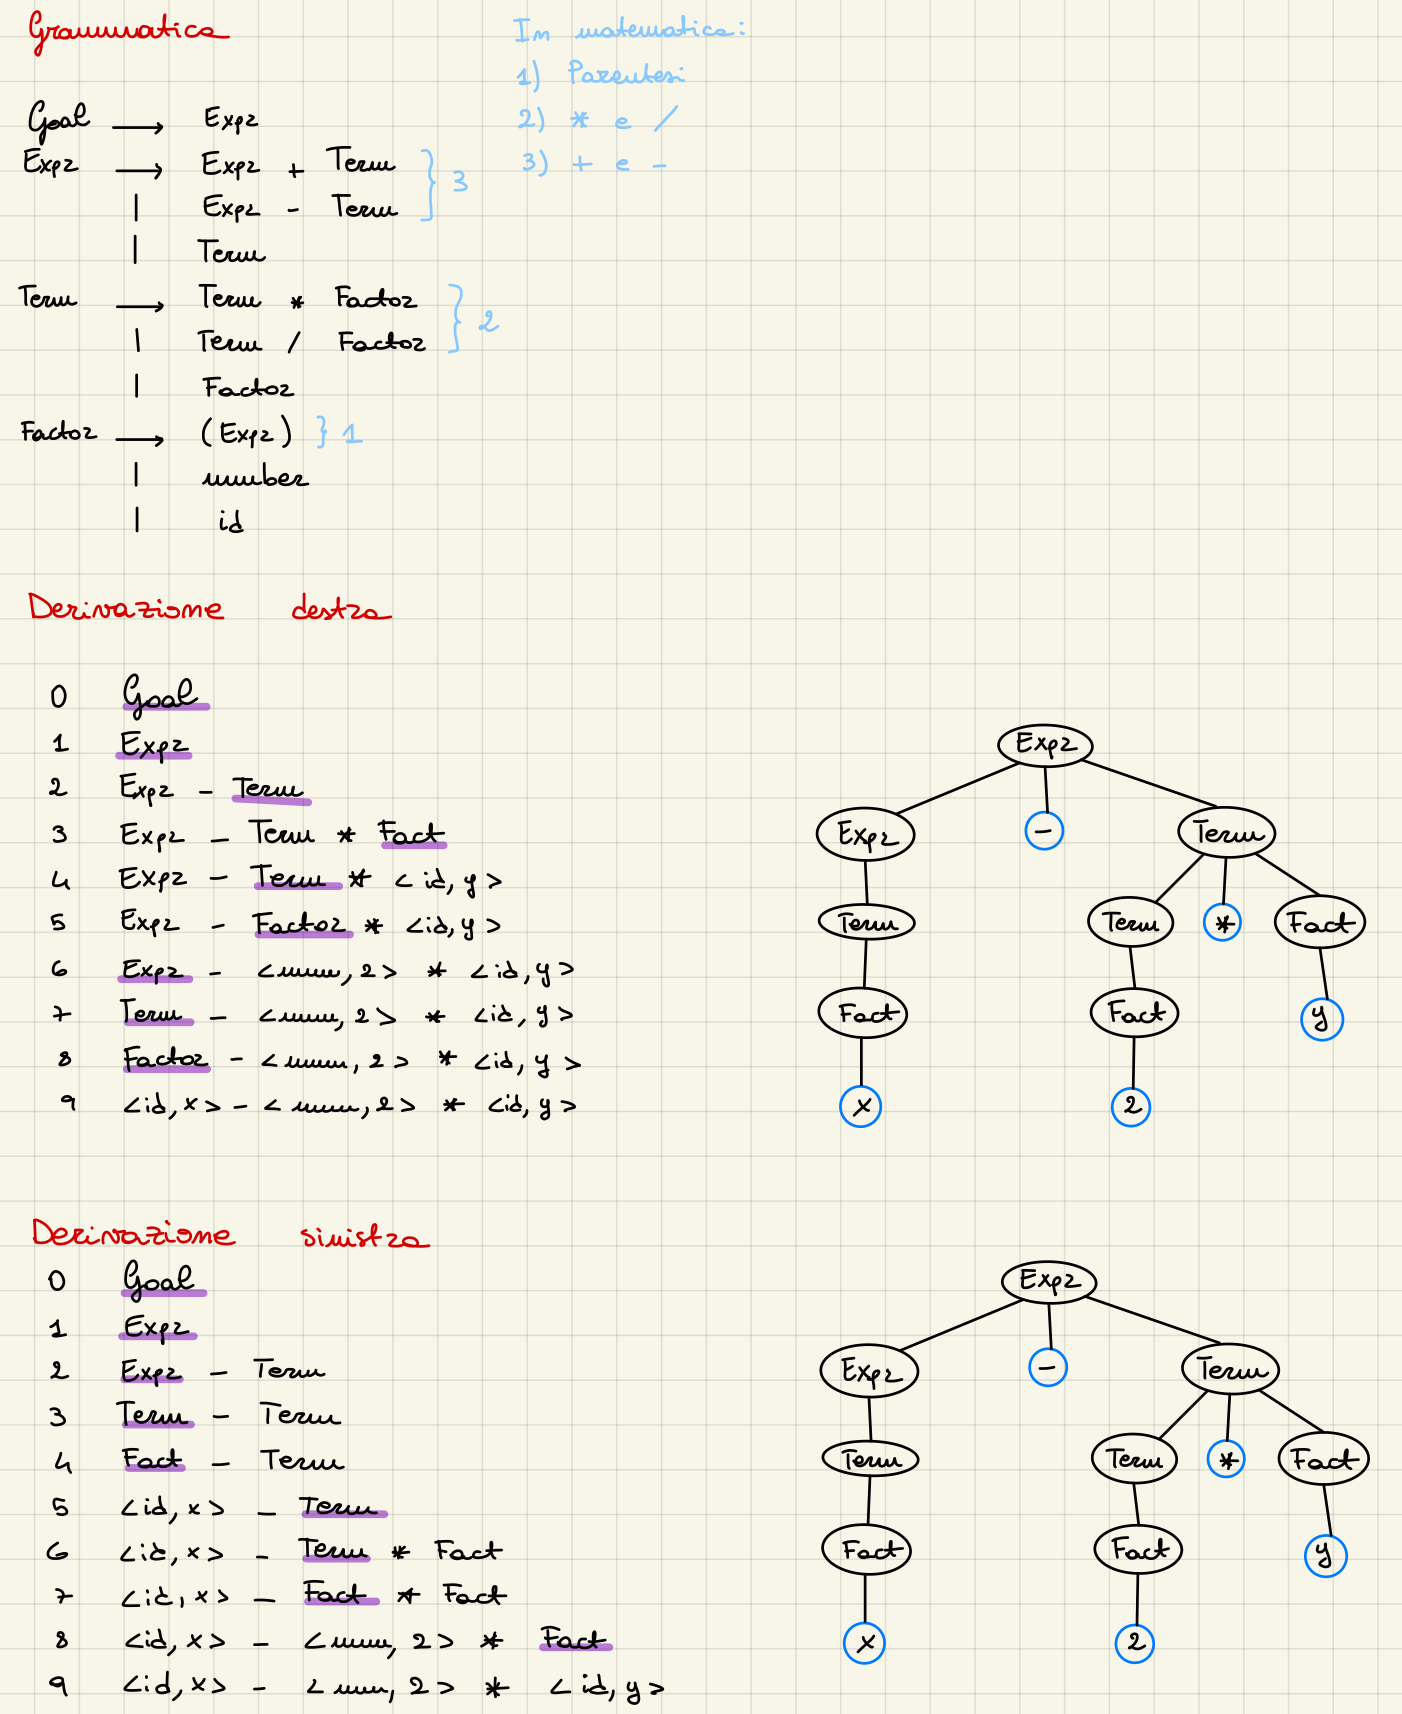 Grammatica
In matematica:
1) Parentesi
2) * e /
3) + e -
Goal → Expr
Expr → Expr + Term
| Expr - Term
} 3
| Term
Term → Term * Factor
| Term / Factor
} 2
| Factor
Factor → (Expr) } 1
| number
| id
Derivazione destra
0 Goal
1 Expr
2 Expr - Term
3 Expr - Term * Fact
4 Expr - Term * <id, y>
5 Expr - Factor * <id, y>
6 Expr - <num, 2> * <id, y>
7 Term - <num, 2> * <id, y>
8 Factor - <num, 2> * <id, y>
9 <id, x> - <num, 2> * <id, y>
Expr
Expr - Term
Term Term * Fact
Fact Fact y
x 2
Derivazione sinistra
0 Goal
1 Expr
2 Expr - Term
3 Term - Term
4 Fact - Term
5 <id, x> - Term
6 <id, x> - Term * Fact
7 <id, x> - Fact * Fact
8 <id, x> - <num, 2> * Fact
9 <id, x> - <num, 2> * <id, y>
Expr
Expr - Term
Term Term * Fact
Fact Fact y
x 2